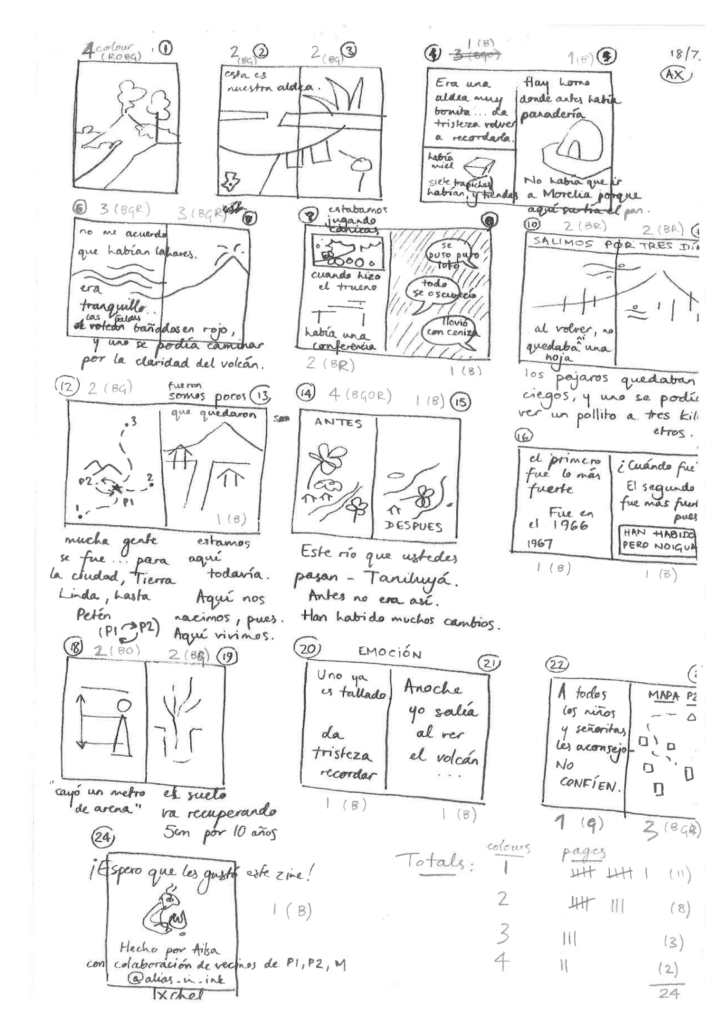 4 colour (ROBG) 1
2 (BG) 2
2 (BG) 3
4 3 (BGO) 1 (B)
1 (B) 5
18/7
AX
esta es
nuestra aldea.
Era una
aldea muy
bonita... La
tristeza volver
a recordarla.
había
miel
siete trapiches
habían, y tiendas
Hay horno
donde antes había
panadería
No había que ir
a Morelia porque
aquí salía el pan.
6 3 (BGR)
3 (BGR)
no me acuerdo
que habían lahares.
era
tranquilo...
las faldas
de volcán bañadas en rojo,
y uno se podía caminar
por la claridad del volcán.
estabamos
jugando
canicas
cuando hizo
el trueno
había una
conferencia
2 (BR)
9
se
puso puro
luto
todo
se oscureció
llovió
con ceniza
1 (B)
10 2 (BR)
2 (BR)
SALIMOS POR TRES DÍA
al volver, no
quedaba ni una
hoja
los pajaros quedaban
ciegos, y uno se podía
ver un pollito a tres kil
etros.
12 2 (BG)
mucha gente
se fue... para
la ciudad, Tierra
Linda, hasta
Petén
(P1 P2)
P2 P1 1 2 3
fueron
somos pocos 13
que quedaron
1 (B)
estamos
aquí
todavía.
Aquí nos
nacimos, pues.
Aquí vivimos.
14 4 (BGOR)
1 (B) 15
ANTES
DESPUES
Este río que ustedes
pasan - Taniluyá.
Antes no era así.
Han habido muchos cambios.
16
el primero
fue lo más
fuerte
Fue en
el 1966
1967
1 (B)
¿Cuándo fue
El segundo
fue más fuer
pues
HAN HABIDO
PERO NO IGUA
1 (B)
18 2 (BO)
2 (BG) 19
"cayó un metro
de arena"
el suelo
va recuperando
5cm por 10 años
20 EMOCIÓN 21
Uno ya
es tallado
La
tristeza
recordar
1 (B)
Anoche
yo salía
al ver
el volcán
...
1 (B)
22
A todos
los niños
y señoritas
les aconsejo
NO
CONFÍEN.
MAPA P2
3 (BGR)
24
¡Espero que les gustó este zine!
1 (B)
Hecho por Ailsa
con colaboración de vecinos de P1, P2, M
@alias_in_ink
Ixchel
Totals:
colours pages
1 (11)
2 (8)
3 (3)
4 (2)
24